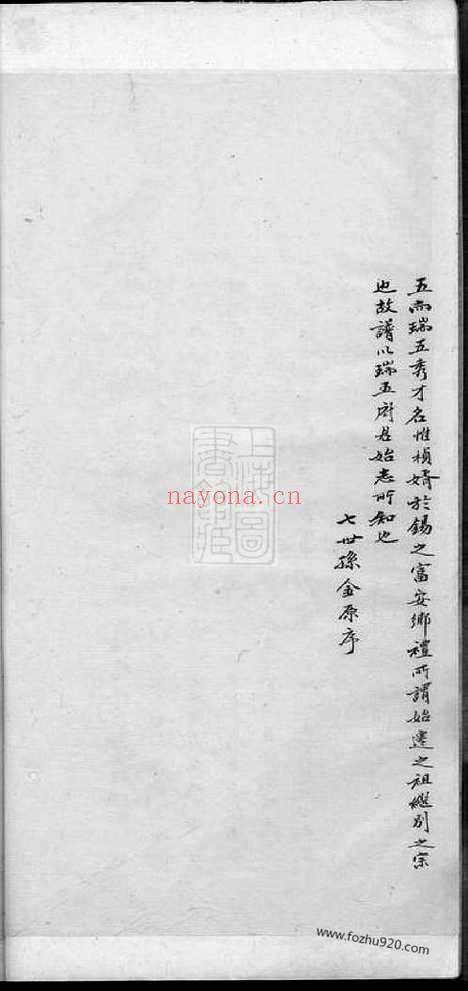 五而瑞五秀才名惟楨婿於錫之富安鄉禮所謂始遷之祖繼別之宗
也故譜以瑞五府君始志所知也
七世孫金原序
上海圖書館藏
nayona.cn
www.fozhu920.com